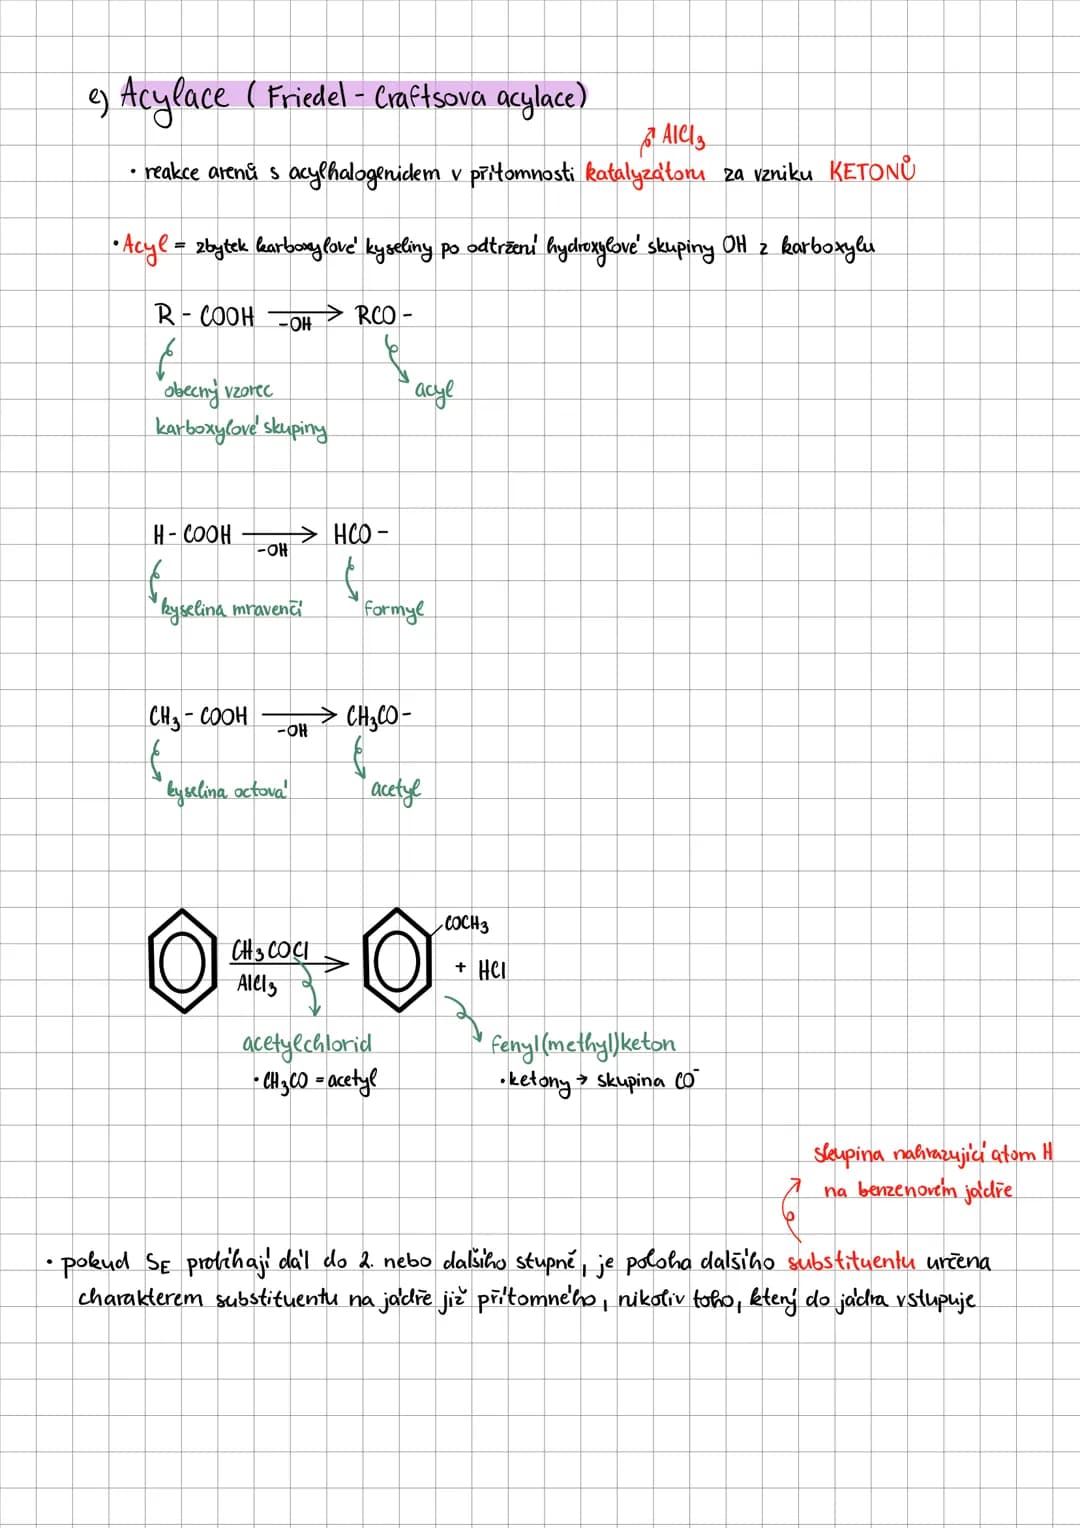 e) Acylace (Friedel - Craftsova acylace)
AlCl3
• reakce arenů s acylhalogenidem v přítomnosti katalyzátoru za vzniku KETONŮ
• Acyl = zbytek karboxylové kyseliny po odtržení hydroxylové skupiny OH z karboxylu
R - COOH -OH → RCO -
obecný vzorec
karboxylové skupiny
acyl
H - COOH -OH → HCO -
kyselina mravenčí
formyl
CH3 - COOH -OH → CH3CO -
kyselina octová
acetyl
CH3COCl
AlCl3
COCH3
+ HCl
acetylchlorid
• CH3CO = acetyl
fenyl(methyl)keton
• ketony → skupina CO-
skupina nahrazující atom H
na benzenovém jádře
• pokud SE probíhají dál do 2. nebo dalšího stupně, je poloha dalšího substituentu určena
charakterem substituentu na jádře již přítomného, nikoliv toho, který do jádra vstupuje